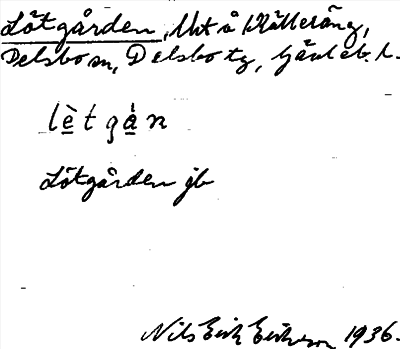 Lötgården, Mot å Källeräng,
Delsbo sn, Delsbo tg, Gävleb. l.
lè̱tgå̱̀n
Lötgården jb
Nils Erik Eriksson 1936.